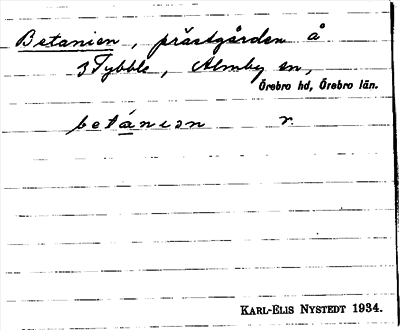 Betanien, prästgården å
Tybble, Almby sn,
Örebro hd, Örebro län.
betánıən r.
KARL-ELIS NYSTEDT 1934.